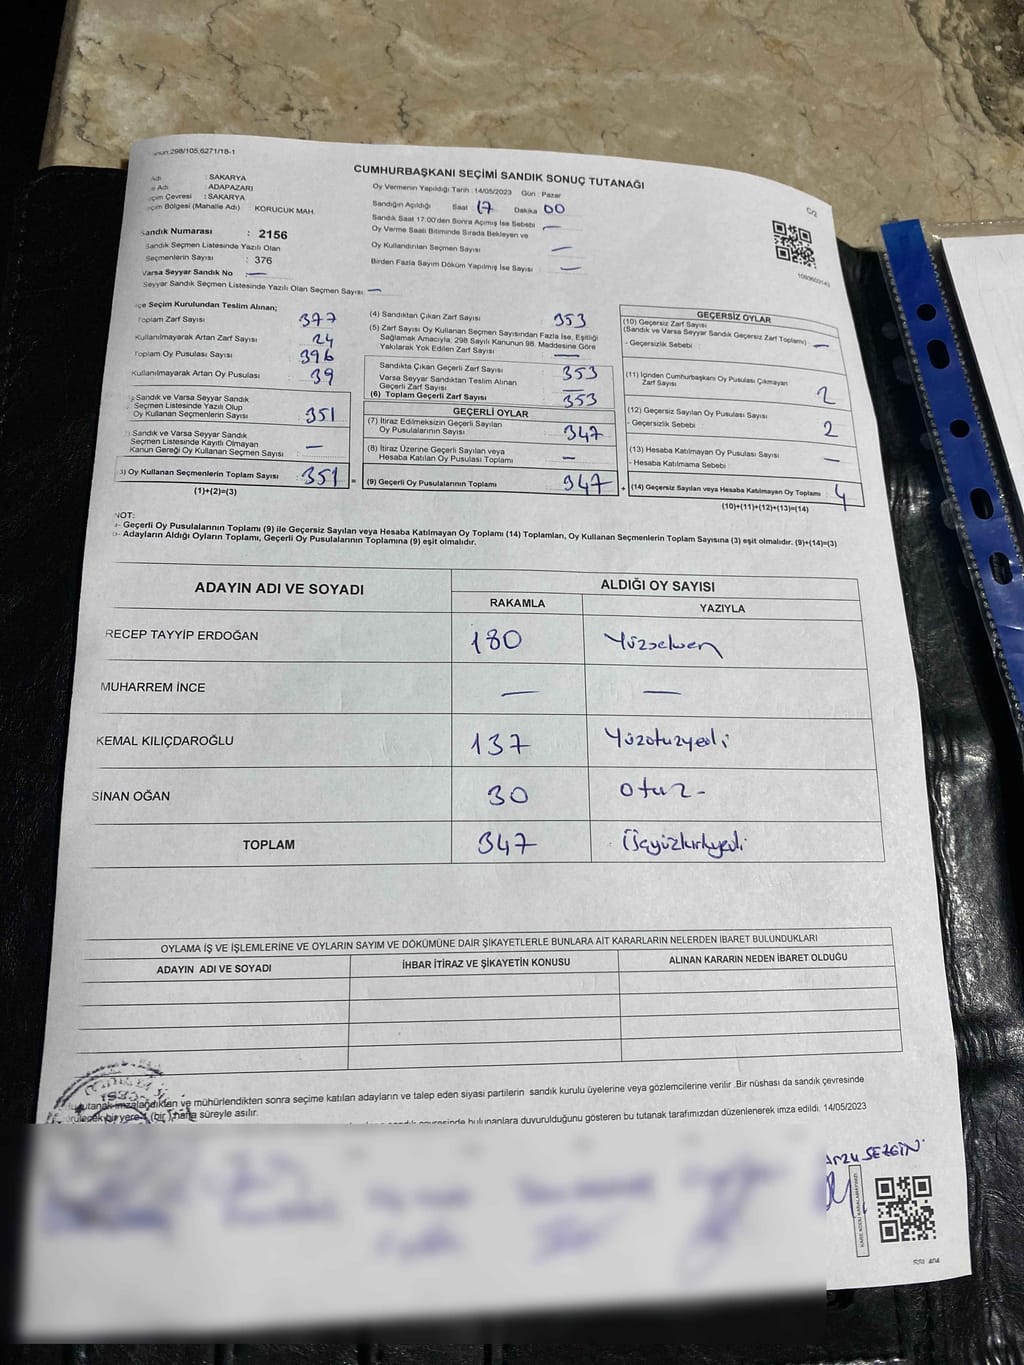 298/105,6271/18-1
CUMHURBAŞKANI SEÇİMİ SANDIK SONUÇ TUTANAĞI
C/2
: SAKARYA
Adı : ADAPAZARI
Çevresi : SAKARYA
Bölgesi (Mahalle Adı) : KORUCUK MAH.
Sandık Numarası : 2156
Sandık Seçmen Listesinde Yazılı Olan
Seçmenlerin Sayısı : 376
Varsa Seyyar Sandık No : —
Seyyar Sandık Seçmen Listesinde Yazılı Olan Seçmen Sayısı : —
Oy Vermenin Yapıldığı Tarih : 14/05/2023 Gün : Pazar
Sandığın Açıldığı Saat 17 Dakika 00
Sandık Saat 17:00'den Sonra Açımış İse Sebebi —
Oy Verme Saati Bitiminde Sırada Bekleyen ve
Oy Kullandırılan Seçmen Sayısı —
Birden Fazla Sayım Döküm Yapılmış İse Sayısı —
Seçim Kurulundan Teslim Alınan;
Toplam Zarf Sayısı : 377
Kullanılmayarak Artan Zarf Sayısı : 24
Toplam Oy Pusulası Sayısı : 396
Kullanılmayarak Artan Oy Pusulası : 39
Sandık ve Varsa Seyyar Sandık
Seçmen Listesinde Yazılı Olup
Oy Kullanan Seçmenlerin Sayısı : 351
Sandık ve Varsa Seyyar Sandık
Seçmen Listesinde Kayıtlı Olmayan
Kanun Gereği Oy Kullanan Seçmen Sayısı : —
3) Oy Kullanan Seçmenlerin Toplam Sayısı : 351 =
(1)+(2)=(3)
(4) Sandıktan Çıkan Zarf Sayısı : 353
(5) Zarf Sayısı Oy Kullanan Seçmen Sayısından Fazla İse, Eşitliği
Sağlamak Amacıyla, 298 Sayılı Kanunun 98. Maddesine Göre
Yakılarak Yok Edilen Zarf Sayısı : —
Sandıkta Çıkan Geçerli Zarf Sayısı : 353
Varsa Seyyar Sandıktan Teslim Alınan
Geçerli Zarf Sayısı : —
(6) Toplam Geçerli Zarf Sayısı : 353
GEÇERLİ OYLAR
(7) İtiraz Edilmeksizin Geçerli Sayılan
Oy Pusulalarının Sayısı : 347
(8) İtiraz Üzerine Geçerli Sayılan veya
Hesaba Katılan Oy Pusulası Toplamı : —
(9) Geçerli Oy Pusulalarının Toplamı : 347 +
GEÇERSİZ OYLAR
(10) Geçersiz Zarf Sayısı
(Sandık ve Varsa Seyyar Sandık Geçersiz Zarf Toplamı) : —
- Geçersizlik Sebebi :
(11) İçinden Cumhurbaşkanı Oy Pusulası Çıkmayan
Zarf Sayısı : 2
(12) Geçersiz Sayılan Oy Pusulası Sayısı : 2
- Geçersizlik Sebebi :
(13) Hesaba Katılmayan Oy Pusulası Sayısı : —
- Hesaba Katılmama Sebebi :
(14) Geçersiz Sayılan veya Hesaba Katılmayan Oy Toplamı : 4
(10)+(11)+(12)+(13)=(14)
NOT:
- Geçerli Oy Pusulalarının Toplamı (9) ile Geçersiz Sayılan veya Hesaba Katılmayan Oy Toplamı (14) Toplamları, Oy Kullanan Seçmenlerin Toplam Sayısına (3) eşit olmalıdır. (9)+(14)=(3)
- Adayların Aldığı Oyların Toplamı, Geçerli Oy Pusulalarının Toplamına (9) eşit olmalıdır.
ADAYIN ADI VE SOYADI ALDIĞI OY SAYISI
RAKAMLA YAZIYLA
RECEP TAYYİP ERDOĞAN 180 Yüzseksen
MUHARREM İNCE — —
KEMAL KILIÇDAROĞLU 137 Yüzotuzyedi
SİNAN OĞAN 30 Otuz -
TOPLAM 347 Üçyüzkırkyedi
OYLAMA İŞ VE İŞLEMLERİNE VE OYLARIN SAYIM VE DÖKÜMÜNE DAİR ŞİKAYETLERLE BUNLARA AİT KARARLARIN NELERDEN İBARET BULUNDUKLARI
ADAYIN ADI VE SOYADI İHBAR İTİRAZ VE ŞİKAYETİN KONUSU ALINAN KARARIN NEDEN İBARET OLDUĞU
tutanak imzalandıktan ve mühürlendikten sonra seçime katılan adayların ve talep eden siyasi partilerin sandık kurulu üyelerine ve gözlemcilerine verilir .Bir nüshası da sandık çevresinde
bir yere 1 (bir) hafta süreyle asılır.
bulunanlara duyurulduğunu gösteren bu tutanak tarafımızdan düzenlenerek imza edildi. 14/05/2023
ARZU SEZGİN